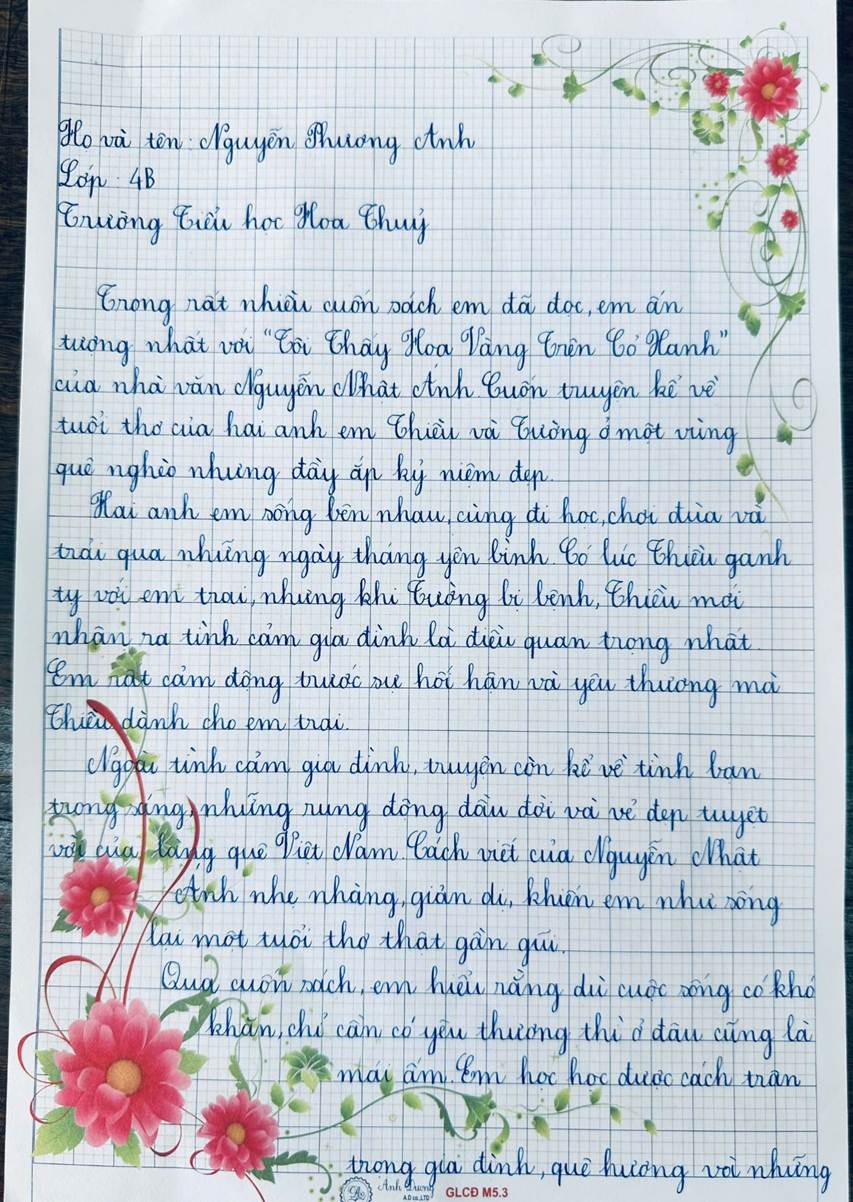 Họ và tên: Nguyễn Phương Anh
Lớp: 4B
Trường Tiểu học Hoa Thuỷ
Trong rất nhiều cuốn sách em đã đọc, em ấn
tượng nhất với "Tôi Thấy Hoa Vàng Trên Cỏ Xanh"
của nhà văn Nguyễn Nhật Ánh. Cuốn truyện kể về
tuổi thơ của hai anh em Thiều và Tường ở một vùng
quê nghèo nhưng đầy ắp kỷ niệm đẹp.
Hai anh em sống bên nhau, cùng đi học, chơi đùa và
trải qua những ngày tháng yên bình. Có lúc Thiều ganh
tỵ với em trai, nhưng khi Tường bị bệnh, Thiều mới
nhận ra tình cảm gia đình là điều quan trọng nhất.
Em rất cảm động trước sự hối hận và yêu thương mà
Thiều dành cho em trai.
Ngoài tình cảm gia đình, truyện còn kể về tình bạn
trong sáng, những rung động đầu đời và vẻ đẹp tuyệt
vời của làng quê Việt Nam. Cách viết của Nguyễn Nhật
Ánh nhẹ nhàng, giản dị, khiến em như sống
lại một tuổi thơ thật gần gũi.
Quả cuốn sách, em hiểu rằng dù cuộc sống có khó
khăn, chỉ cần có yêu thương thì ở đâu cũng là
mái ấm. Em học học được cách trân
trong gia đình, quê hương với những
Anh Dương
A.D co.,LTD
GLCĐ M5.3